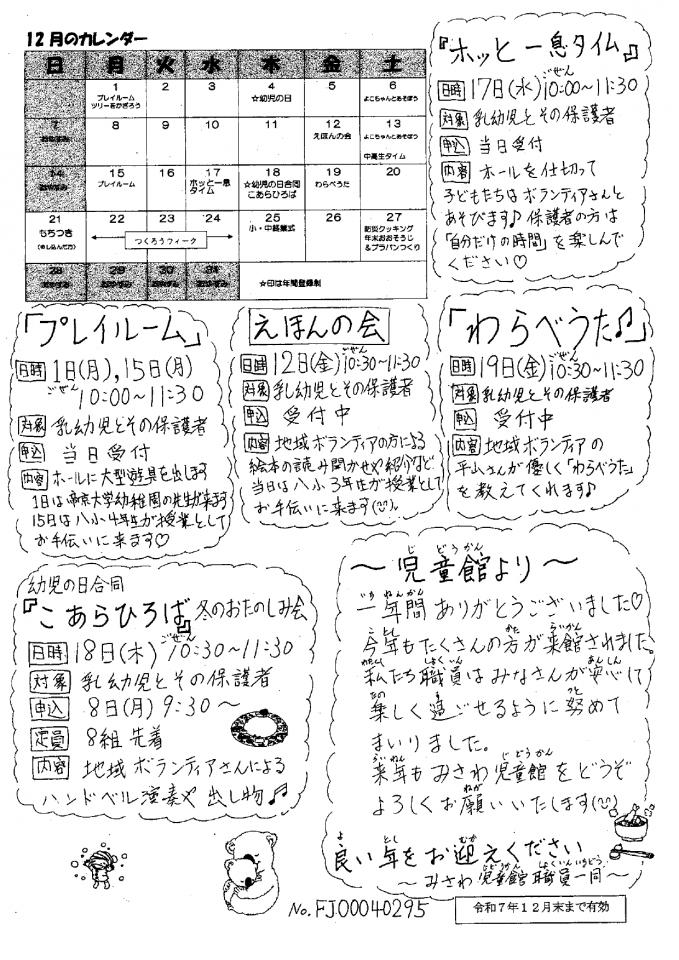 12月のカレンダー
日 月 火 水 木 金 土
1 2 3 4 5 6
プレイルーム ☆幼児の日 よこちゃんとあそぼう
ツリーをかざろう
7 8 9 10 11 12 13
おやすみ えほんの会 よこちゃんとあそぼう
中高生タイム
14 15 16 17 18 19 20
おやすみ プレイルーム ホッと一息 ☆幼児の日合同 わらべうた
タイム こあらひろば
21 22 23 24 25 26 27
もちつき つくろうウィーク 小・中終業式 防災クッキング
(申し込んだ方) 年末おおそうじ
&プラバンつくり
28 29 30 31
おやすみ おやすみ おやすみ おやすみ ☆印は年間登録制
『ホッと一息タイム』
日時 17日(水)10:00〜11:30
ごぜん
対象 乳幼児とその保護者
申込 当日受付
内容 ホールを仕切って
子どもたちはボランティアさんと
あそびます♪保護者の方は
「自分だけの時間」を楽しんで
ください♡
「プレイルーム」
日時 1日(月),15日(月)
ごぜん 10:00〜11:30
対象 乳幼児とその保護者
申込 当日受付
内容 ホールに大型遊具を出します
1日は帝京大学幼稚園の先生が来ます
15日は八小4年生が授業として
お手伝いに来ます♡
えほんの会
日時 12日(金)10:30〜11:30
ごぜん
対象 乳幼児とその保護者
申込 受付中
内容 地域ボランティアの方による
絵本の読み聞かせや紹介など
当日は八小3年生が授業として
お手伝いに来ます(^^)
「わらべうた♪」
日時 19日(金)10:30〜11:30
ごぜん
対象 乳幼児とその保護者
申込 受付中
内容 地域ボランティアの
平山さんが優しく「わらべうた」
を教えてくれます♪
幼児の日合同
『こあらひろば』冬のおたのしみ会
日時 18日(木) 10:30〜11:30
ごぜん
対象 乳幼児とその保護者
申込 8日(月) 9:30〜
定員 8組 先着
内容 地域ボランティアさんによる
ハンドベル演奏や出し物♪
〜児童館より〜
じどうかん
一年間ありがとうございました♡
いちねんかん
今年もたくさんの方が来館されました。
ことし かた らいかん
私たち職員はみなさんが安心して
わたし しょくいん あんしん
楽しく過ごせるように努めて
たの す つと
まいりました。
来年もみさわ児童館をどうぞ
らいねん じどうかん
よろしくお願いいたします(^^)
ねが
良い年をお迎えください
よ とし むか
〜みさわ児童館職員一同〜
じどうかん しょくいんいちどう
No.FJ00040295
令和7年12月末まで有効